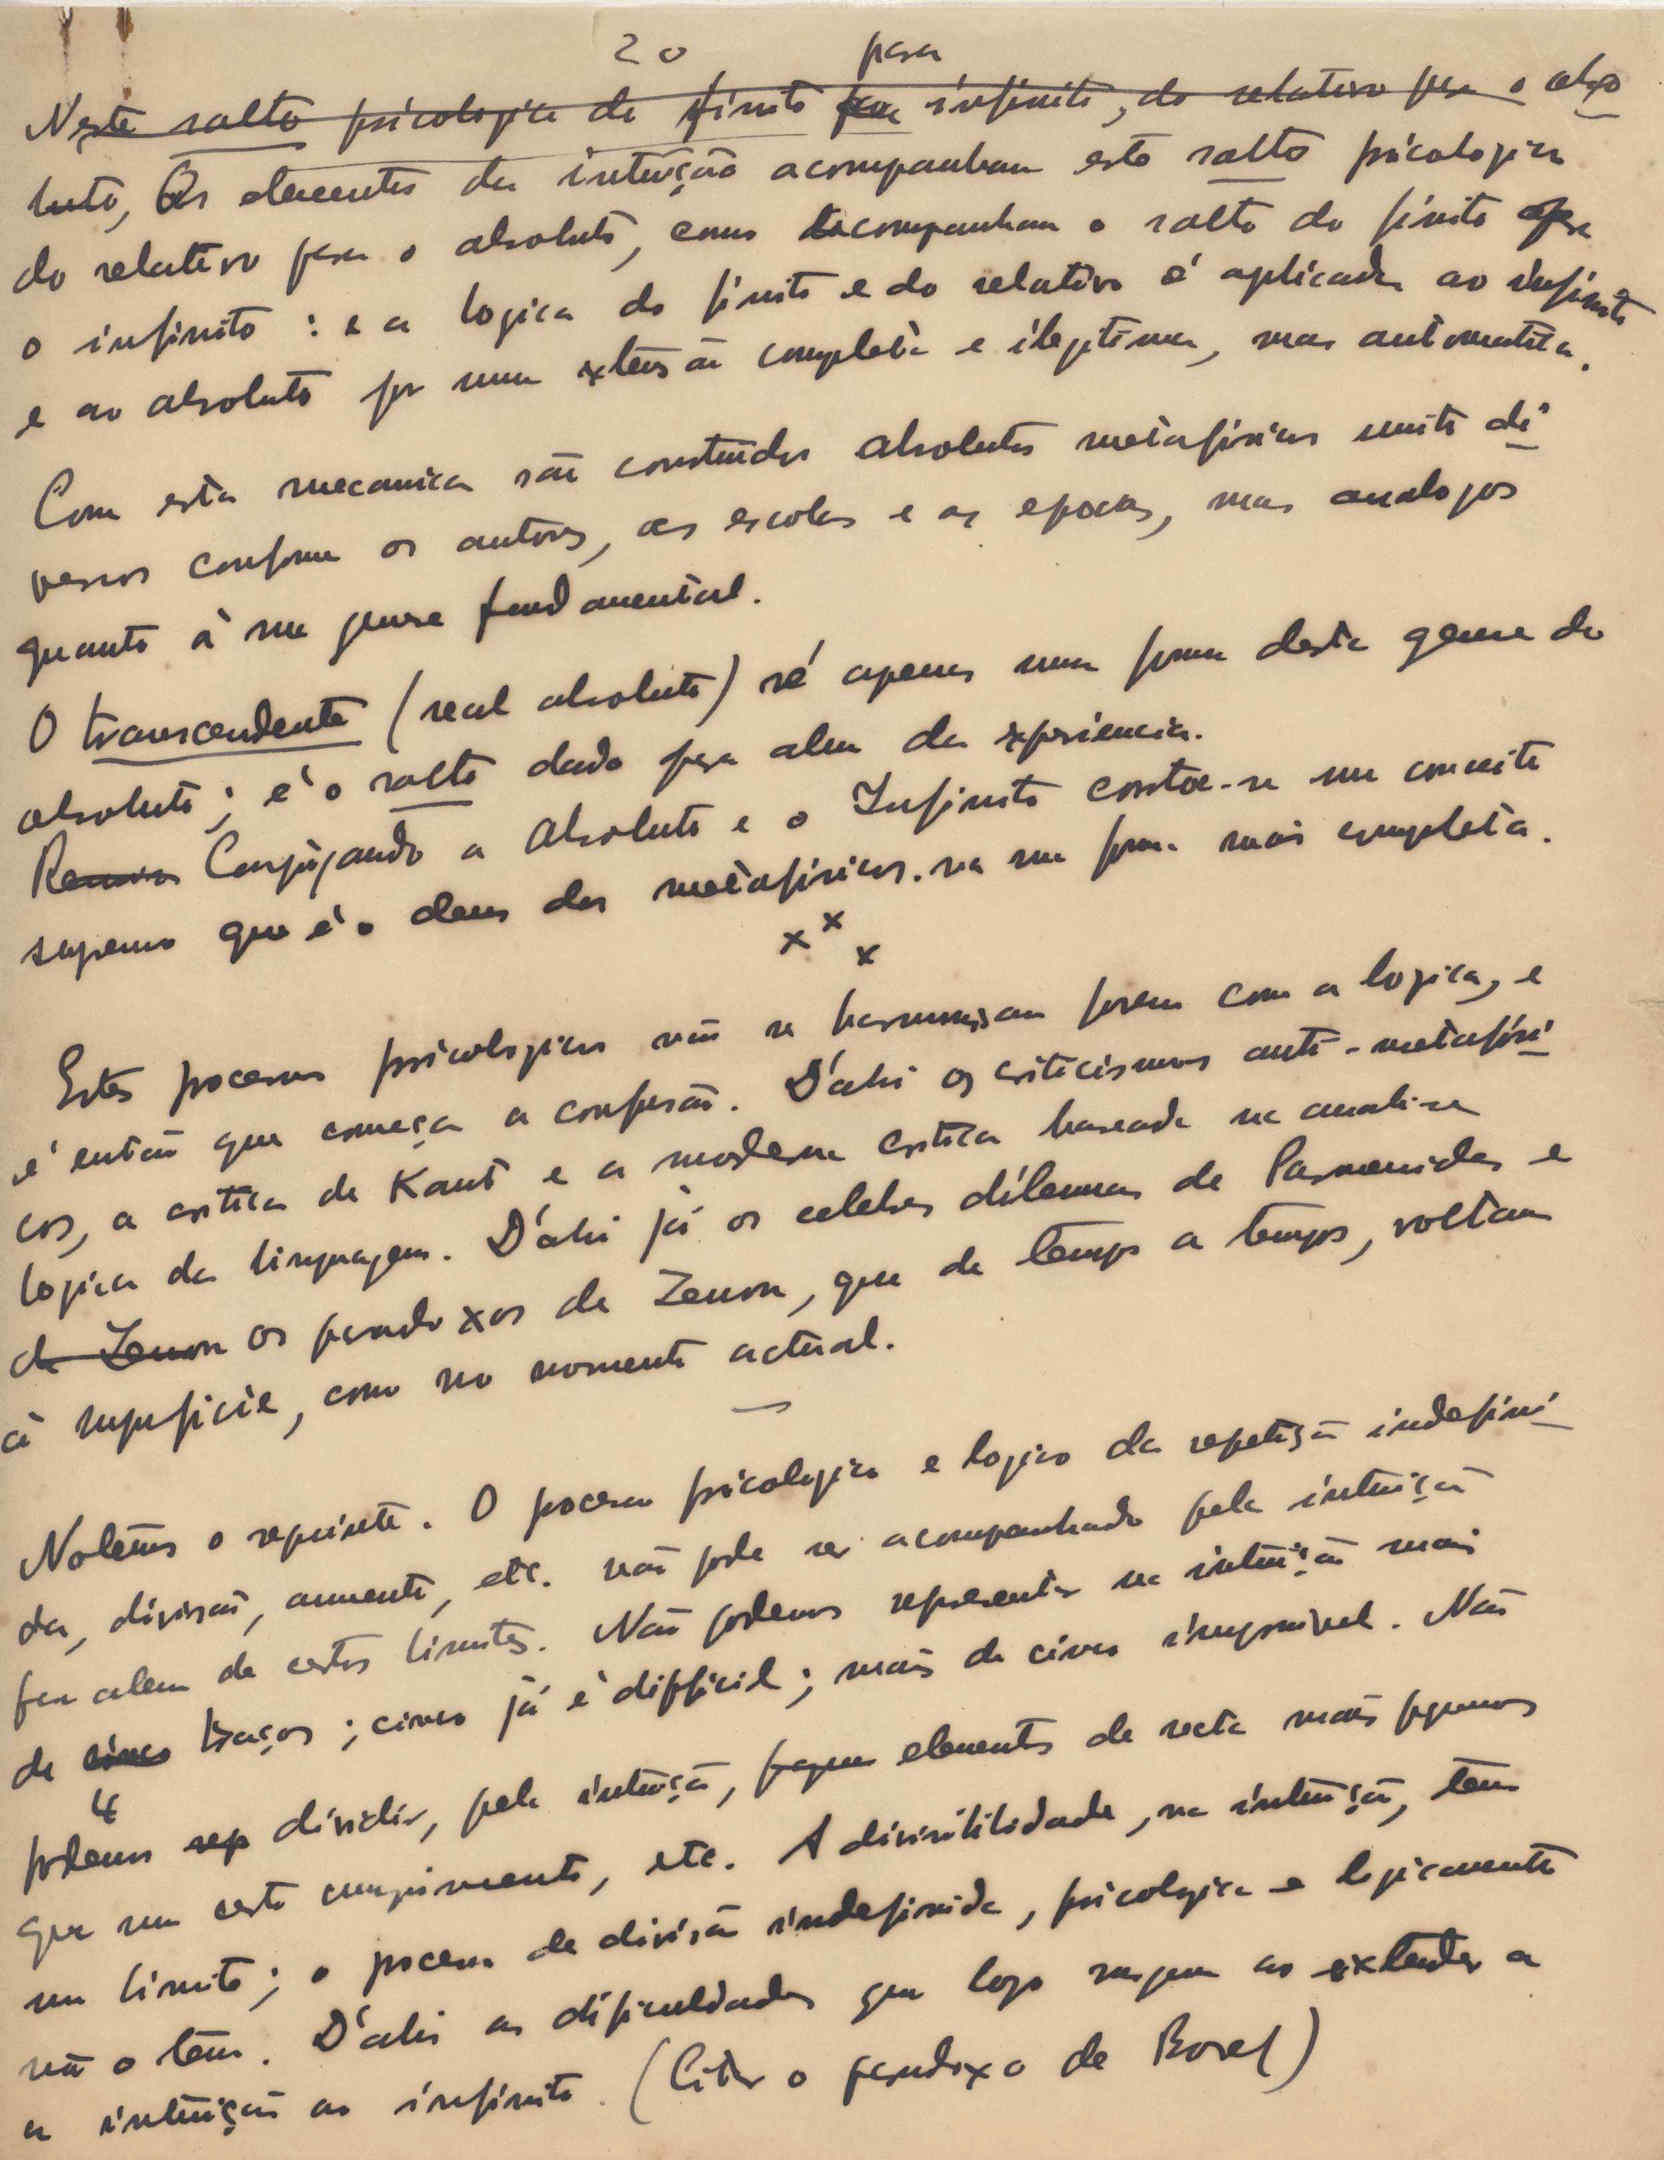 20 para
Neste salto psicologico do finito para infinito, do relativo para o abso
luto, Os elementos da intuição acompanham este salto psicologico
do relativo para o absoluto, como acompanham o salto do finito para
o infinito : e a logica do finito e do relativo é aplicada ao infinito
e ao absoluto por uma extensão completa e ilegitima, mas automatica.
Com esta mecanica são construidos absolutos metafisicos muito di
versos conforme os autores, as escolas e as epocas, mas analogos
quanto à sua genese fundamental.
O transcendente (real absoluto) é apenas uma forma desta genese do
absoluto; é o salto dado para alem da experiencia.
Conjugando o Absoluto e o Infinito constroe-se um conceito
supremo que é o deus dos metafisicos. na sua forma mais completa.
x x x
Estes processos psicologicos não se harmonisam porem com a logica, e
é então que começa a confusão. D'ahi os criticismos anti-metafisi
cos, a critica de Kant e a moderna critica baseada na analise
logica da linguagem. D'ahi já os celebres dilemas de Parmenides e
de Zenon os paradoxos de Zenon, que de tempos a tempos, voltam
à superficie, como no momento actual.
Notemos o seguinte. O processo psicologico e logico da repetição indefini
da, divisão, aumento, etc. não pode ser acompanhado pela intuição
para alem de certos limites. Não podemos representar na intuição mais
de cinco traços; cinco já é difficil; mais de cinco impossivel. Não
4
podemos rep dividir, pela intuição, elementos de recta mais pequenos
que um certo comprimento, etc. A divisibilidade, na intuição, tem
um limite; o processo de divisão indefinida, psicologica e logicamente
não o tem. D'ahi as dificuldades que logo surgem ao extender a
a intuição ao infinito. (Citar o paradoxo de Borel)